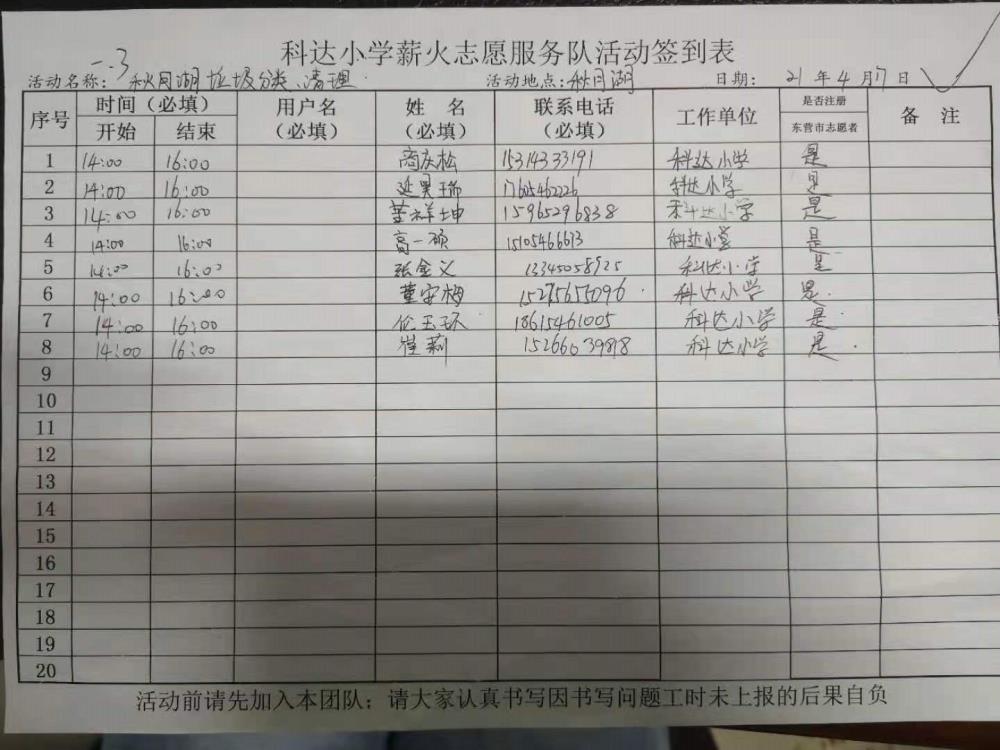 科达小学薪火志愿服务队活动签到表
一.3
活动名称: 秋月湖垃圾分类、清理 活动地点: 秋月湖 日期: 21 年 4 月 17 日
序号 时间（必填） 用户名（必填） 姓 名（必填） 联系电话（必填） 工作单位 是否注册东营市志愿者 备 注
开始 结束
1 14:00 16:00 商庆松 15314333191 科达小学 是
2 14:00 16:00 延昊瑞 17605462226 科达小学 是
3 14:00 16:00 董祥坤 15965296838 科达小学 是
4 14:00 16:00 高一硕 15105466613 科达小学 是
5 14:00 16:00 张金义 13345058925 科达小学 是
6 14:00 16:00 董安梅 15275655096 科达小学 是
7 14:00 16:00 伦玉环 18615461005 科达小学 是
8 14:00 16:00 崔莉 科达小学 是
9
10
11
12
13
14
15
16
17
18
19
20
活动前请先加入本团队；请大家认真书写因书写问题工时未上报的后果自负